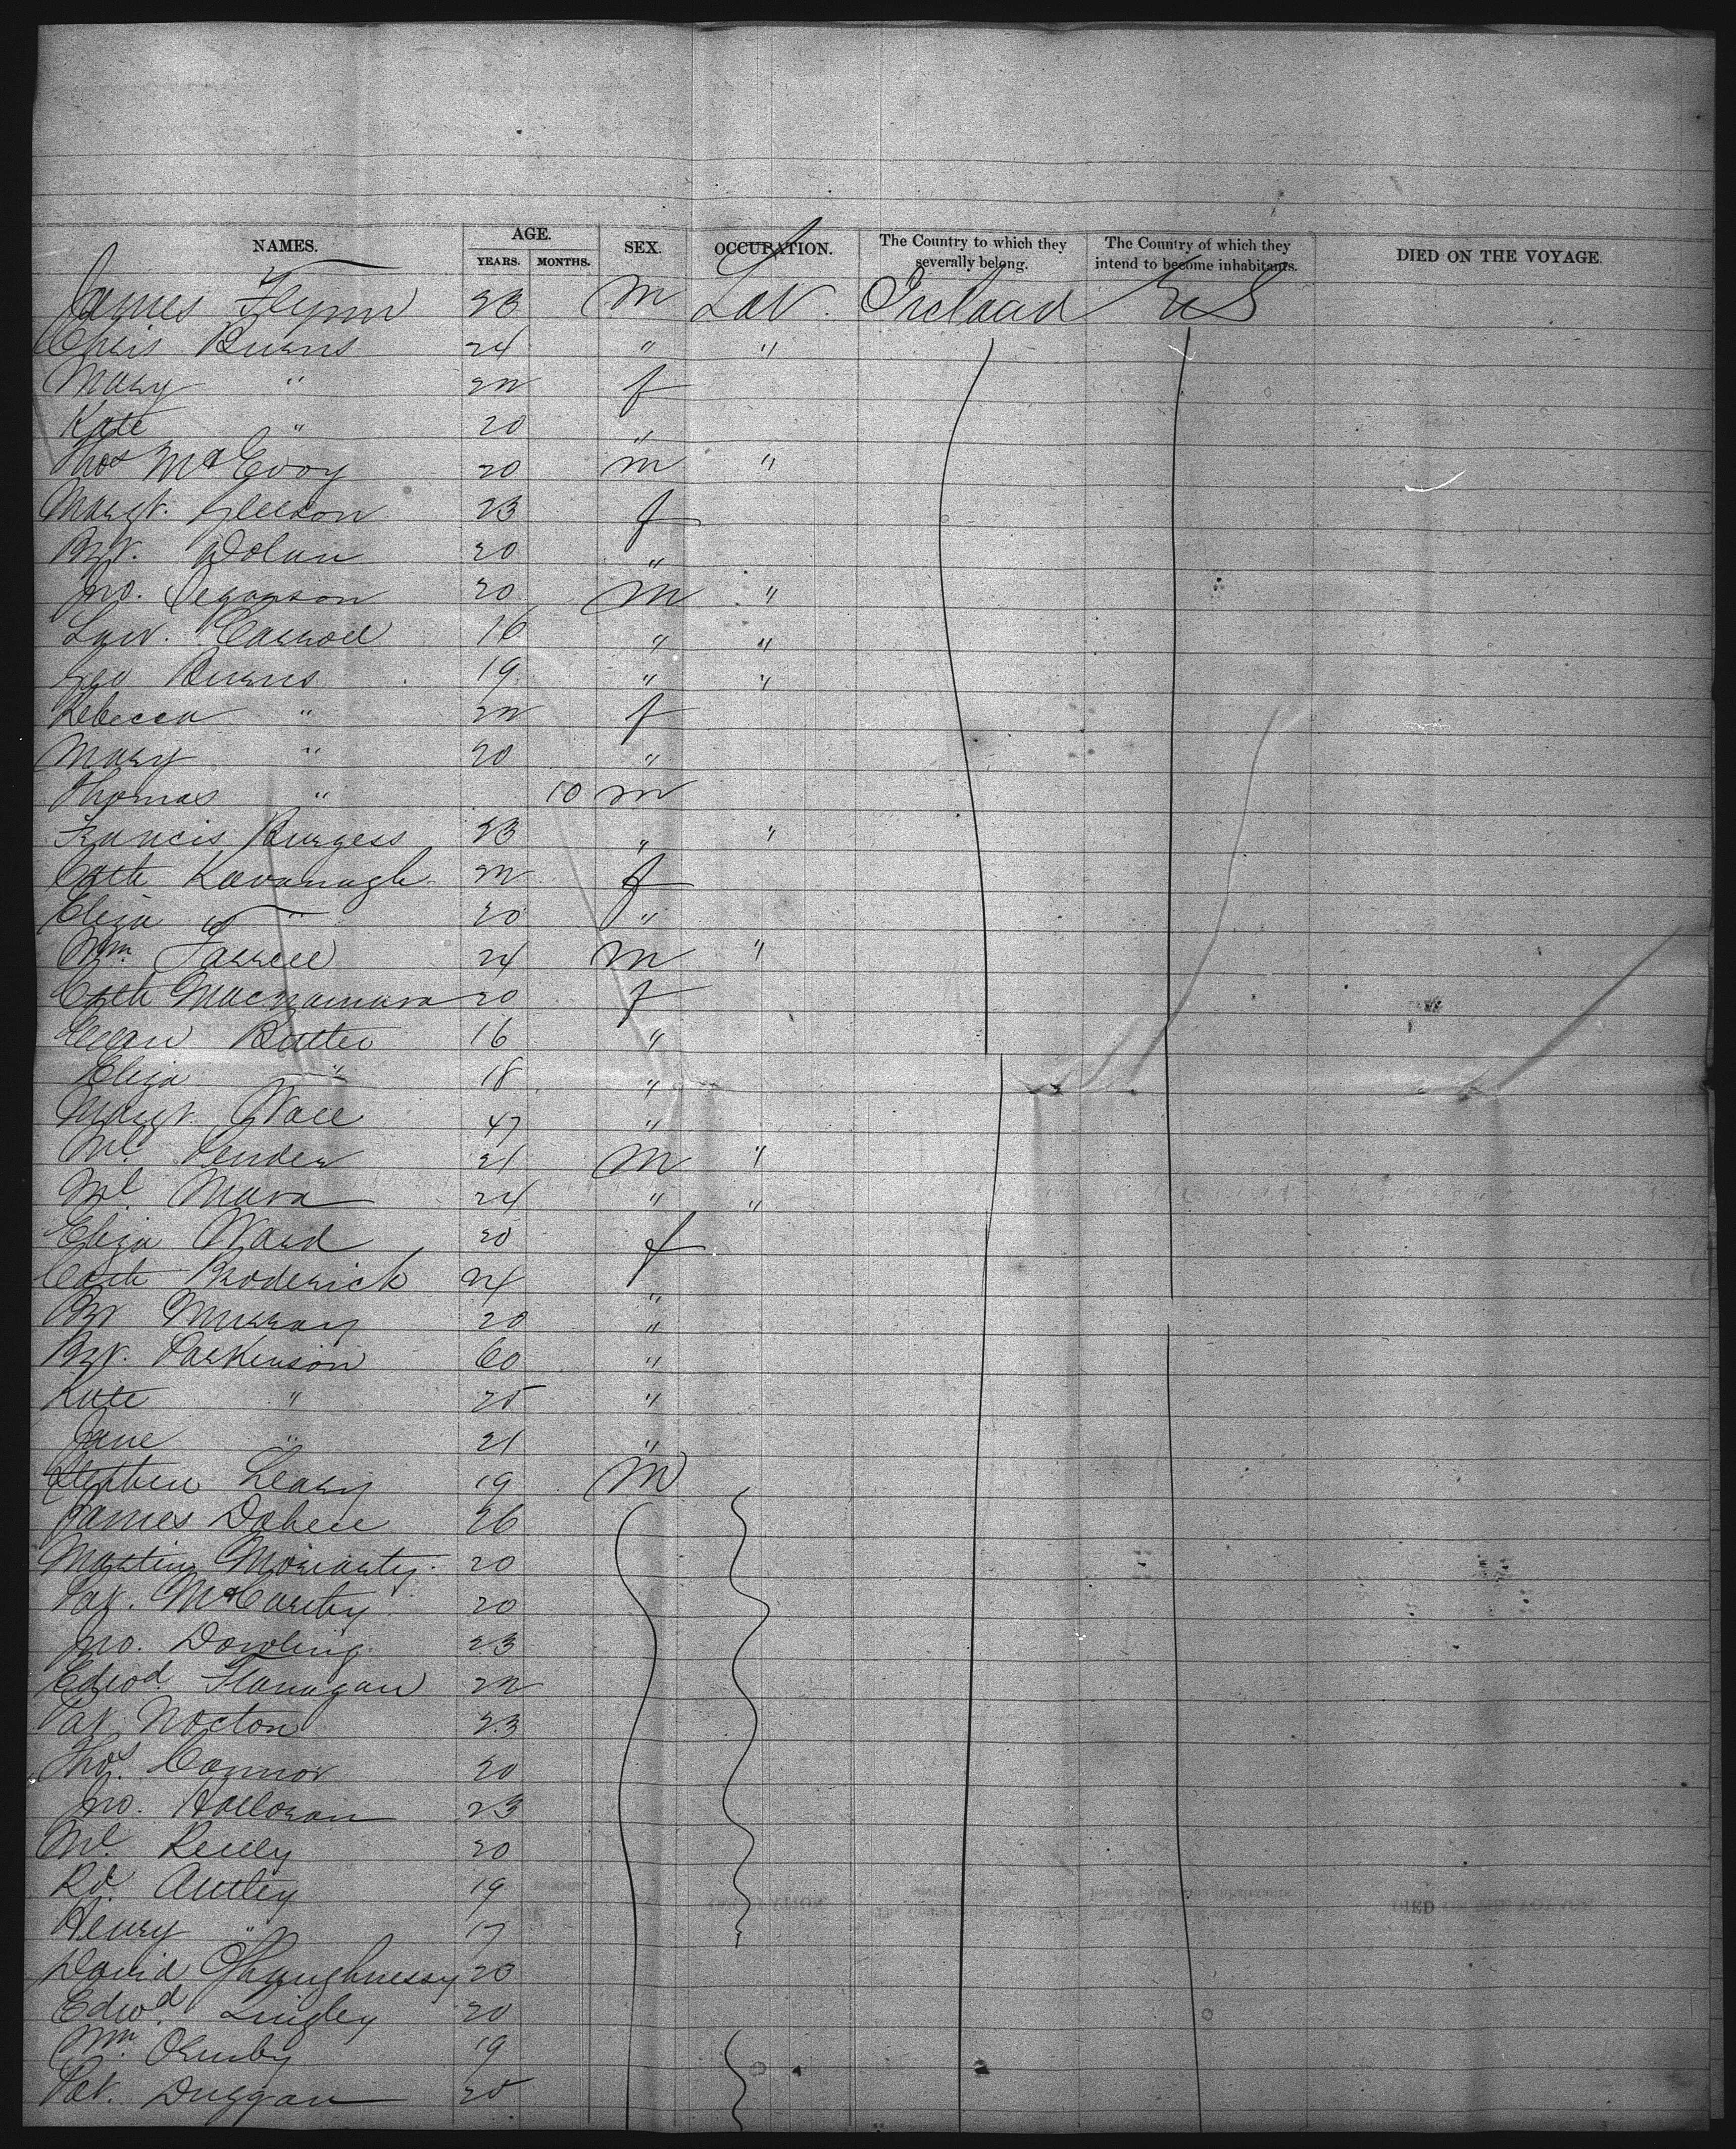 NAMES. AGE. SEX. OCCUPATION. The Country to which they severally belong. The Country of which they intend to become inhabitants. DIED ON THE VOYAGE.
YEARS. MONTHS.
James Flynn 23 m Lab. Ireland US
Chris Burns 24 " "
Mary " 22 f
Kate " 20 "
Thos McEvoy 20 m "
Margt. Gleeson 23 f
Bgt. Dolan 20 "
Jno. 20 m "
Law. Carroll 16 " "
Geo Burns 19 " "
Rebecca " 22 f
Mary " 20 "
Thomas " 10 m
Francis Burgess 23 " "
Cath Kavanagh 22 f
Eliza " 20 "
Wm. Farrell 24 m "
Cath Macnamara 20 f
Ellen Butler 16 "
Eliza " 18 "
Margt. Wall 47 "
Ml. 21 m "
Ml. Mara 24 " "
Eliza Ward 20 f
Cath Broderick 24 "
Bgt Murray 20 "
Bgt. Parkinson 60 "
Kate " 25 "
Jane " 21 "
Stephen Leary 19 m
James Dahill 26
Martin Moriarty 20
Pat. McCarthy 20
Jno. Dowling 23
Edwd. Flanagan 22
Pat Norton 23
Thos. Connor 20
Jno. Halloran 23
Ml. Reilly 20
Rd. 19
Henry " 17
David OShaughnessy 20
Edwd. Lingley 20
Wm. Ormsby 19
Pat. Duggan 25